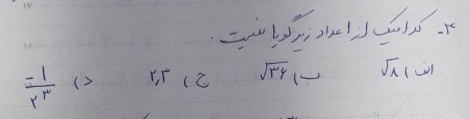 ۴- کدامیک از اعداد زیر گویا نیست.
الف) √۸ ب) √۳۶ ج) ۲٫۳ د) -۱/۲۳